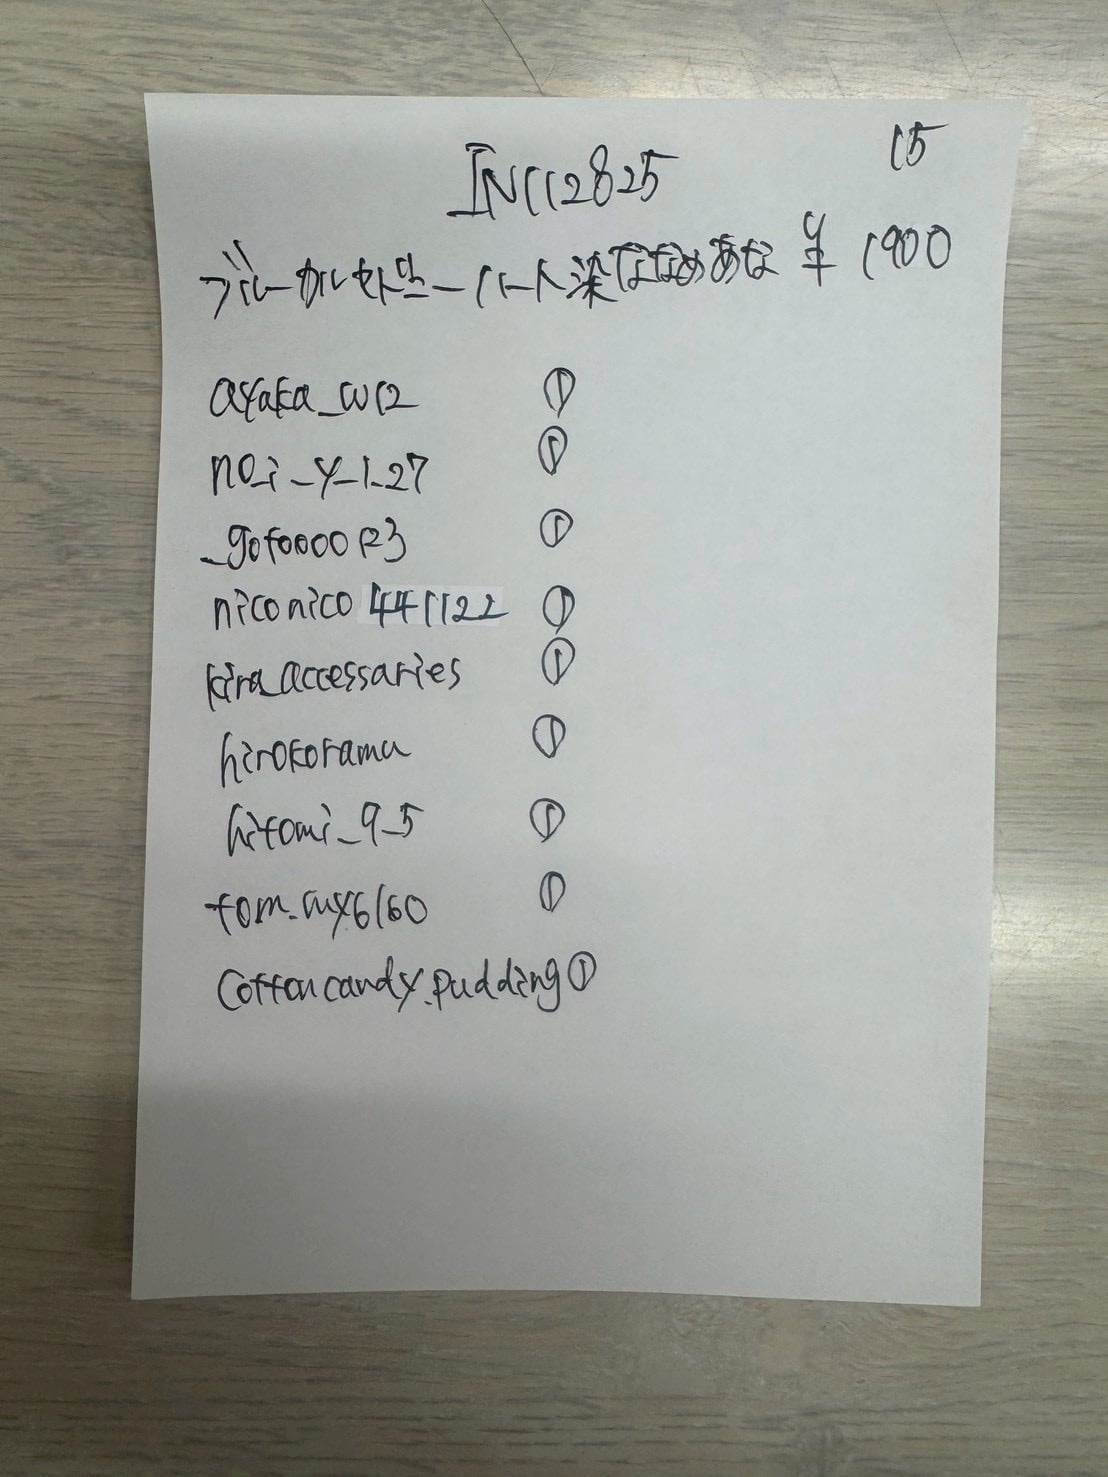 15
INC112825
ブルーカルセドニーハート染ななめあな ¥1900
ayaka_w12 ①
no_i_y_1_27 ①
_gofoooo123 ①
niconico441122 ①
kira_accessaries ①
hirokorama ①
hitomi_9_5 ①
tom.my6160 ①
cottoncandy.pudding ①